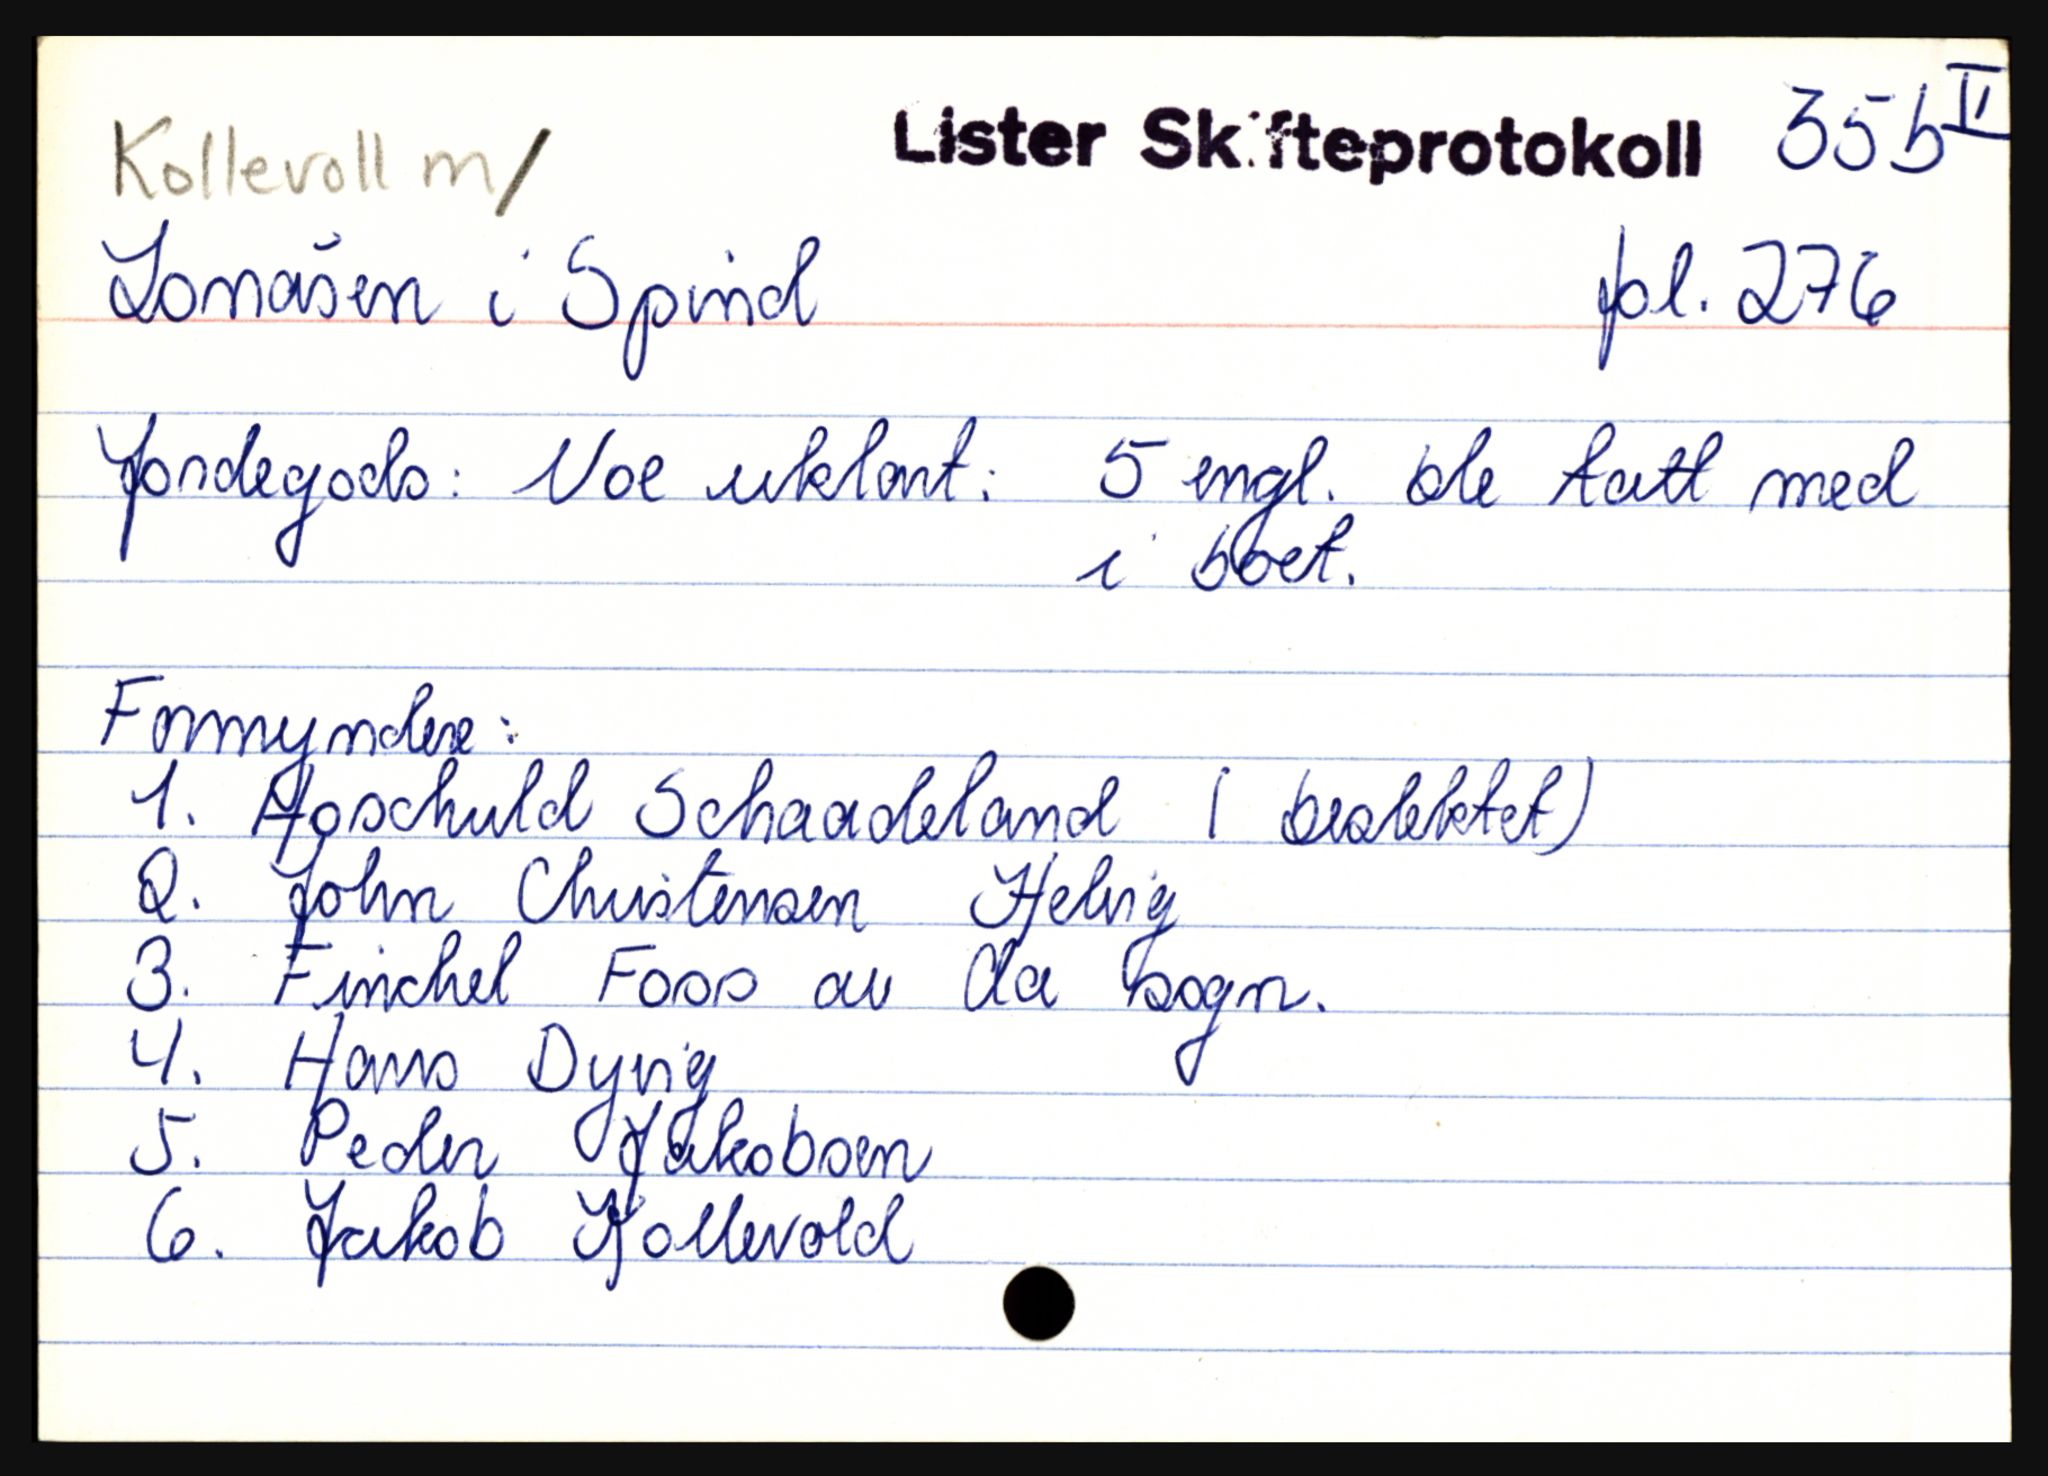 Kollevoll m/
Lister Skifteprotokoll 35b II
Lonåsen i Spind fol. 276
Jordegods: Noe uklart: 5 engl. ble tatt med
i boet.
Formyndere:
1. Aoschuld Schaadeland (beslektet)
2. John Christensen Helvig
3. Finchel Foss av Aa sogn.
4. Hans Dyvig
5. Peder Jakobsen
6. Jakob Kollevold